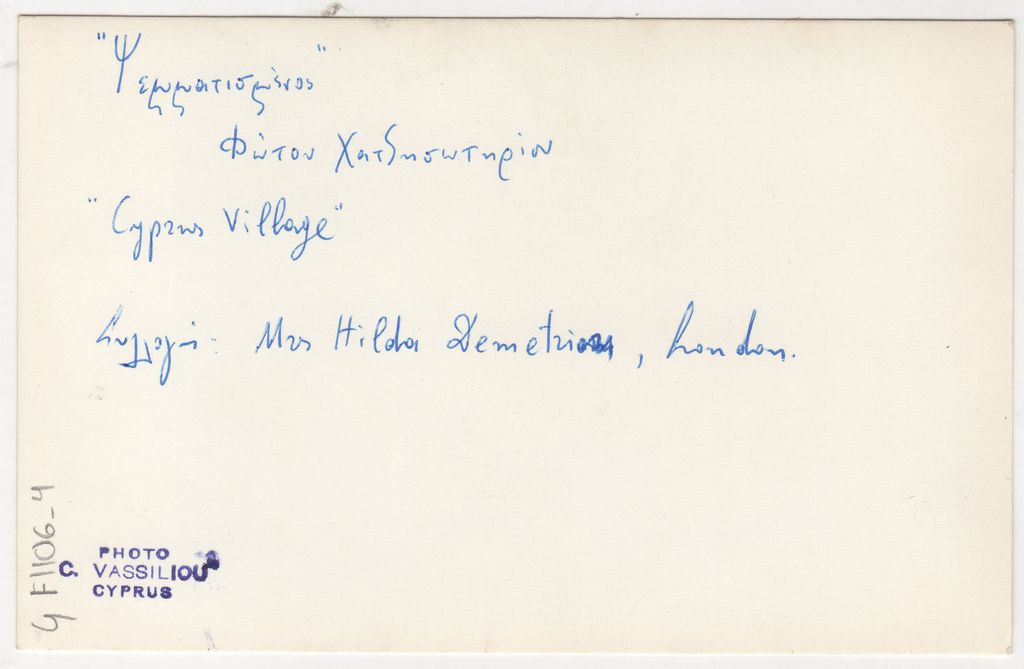 "Ψεμματισμένος"
Φώτου Χατζησωτηρίου
"Cyprus Village"
Συλλογή: Mrs Hilda Demetriou, London.
PHOTO
C. VASSILIOU
CYPRUS
F1106_4